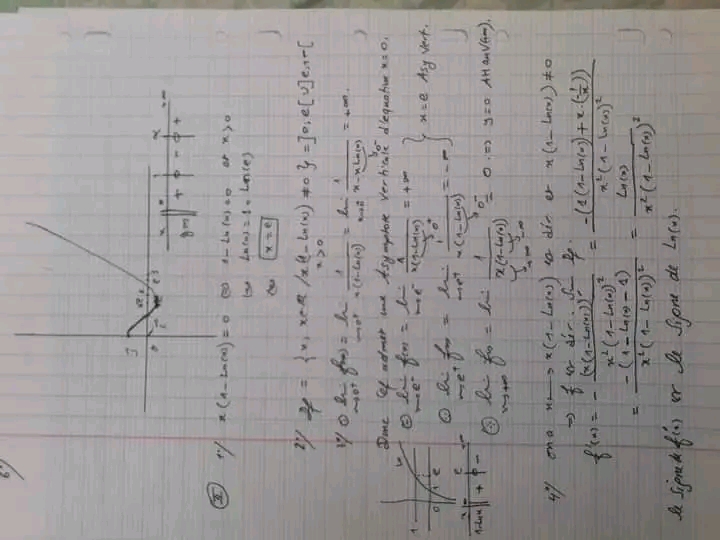 6°/
J
0
x 0 +∞
f(x) + 0 - 0 +
II 1°/ x(1-Ln(x))=0 ⇔ 1-Ln(x)=0 et x>0
⇔ Ln(x)=1=Ln(e)
⇔ x=e
2°/ Df = {x, x∈R / x(1-Ln(x)) ≠0} =]0;e[∪]e,+∞[
x>0
3°/ lim f(x) = lim 1/x(1-Ln(x)) = lim 1/x-xLn(x) = +∞.
Donc Cf admet une Asymptote Verticale d'equation x=0.
lim f(x) = lim 1/x(1-Ln(x)) = +∞
lim f(x) = lim 1/x(1-Ln(x)) = -∞
} x=e Asy Vert.
lim f(x) = lim 1/x(1-Ln(x)) = 0 => y=0 AH
1
0 1 e
x 0 e +∞
1-Ln x + 0 -
4°/ on a x ↦ x(1-Ln(x)) est dér et x(1-Ln(x)) ≠0
=> f est dér. sur Df.
f'(x) = - (x(1-Ln(x)))' / x²(1-Ln(x))² = -(1(1-Ln(x))+x.(-1/x)) / x²(1-Ln(x))²
= -(1-Ln(x)-1) / x²(1-Ln(x))² = Ln(x) / x²(1-Ln(x))²
le signe de f'(x) est le signe de Ln(x).